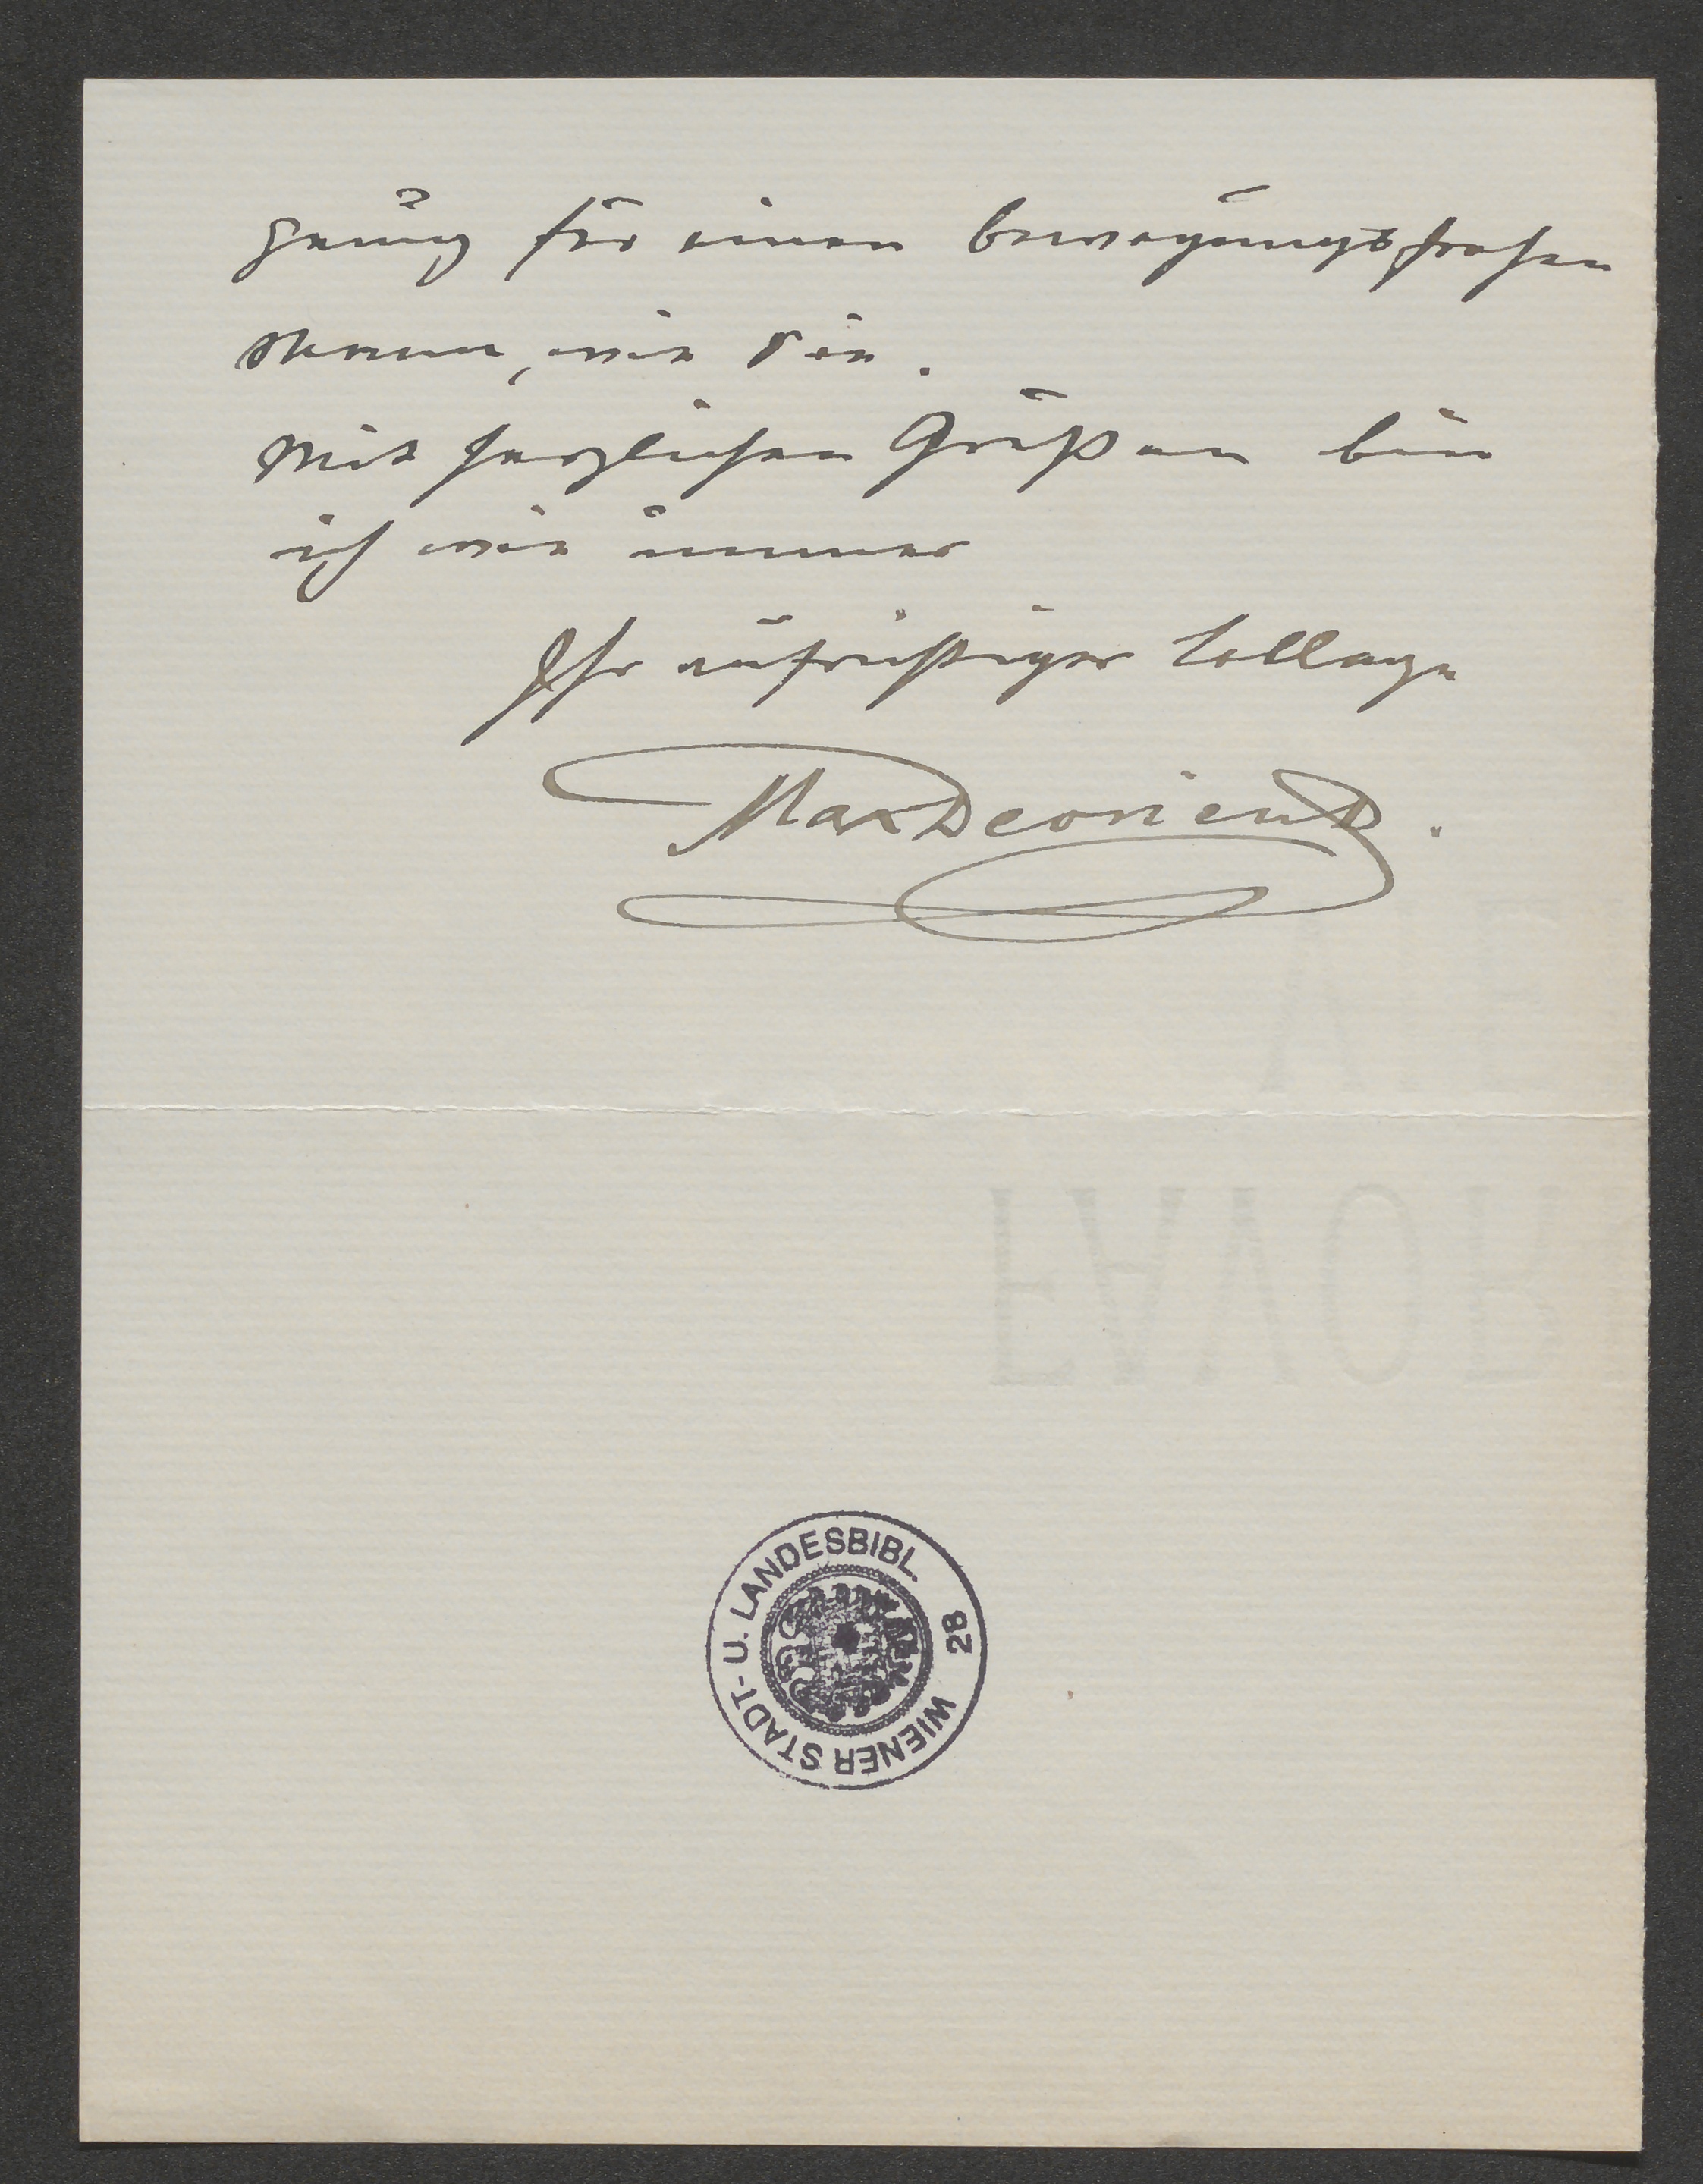 genug für einen bewegungsfrohen
Mann, wie Sie.
Mit herzlichen Grüßen bin
ich wie immer
Ihr aufrichtiger College
Max Devrient.
WIENER STADT- U. LANDESBIBL. 28